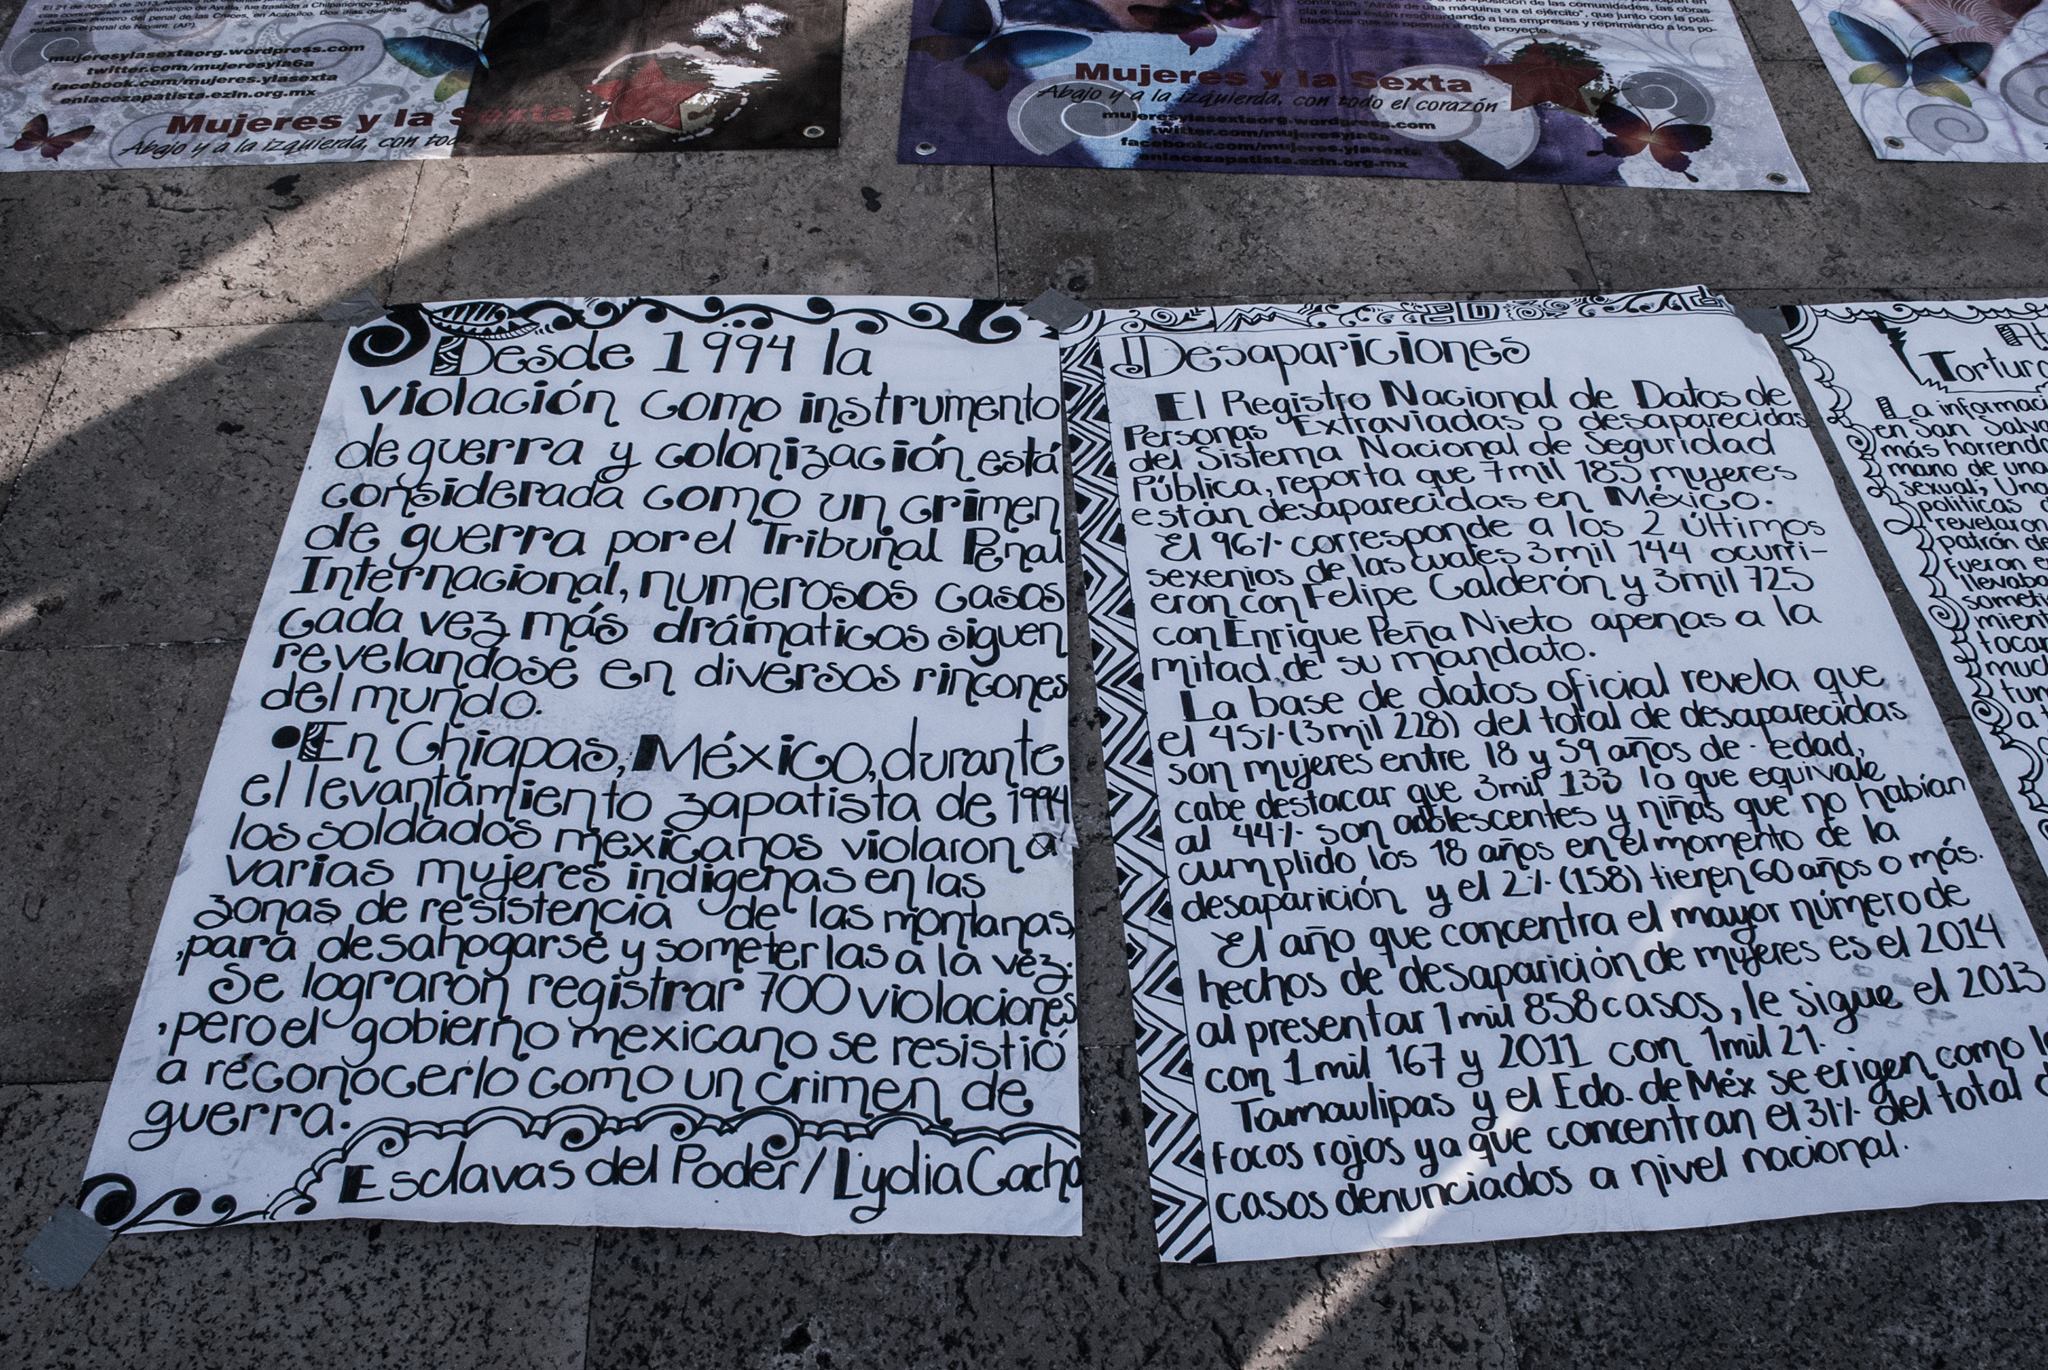 El 21 de agosto de 2013,
estaba en el penal de Nayarit. (AP)
mujeresylasextaorg.wordpress.com
twitter.com/mujeresyla6a
facebook.com/mujeres.ylasexta
enlacezapatista.ezln.org.mx
Mujeres y la Sexta
Abajo y a la izquierda, con todo
oposición de las comunidades, las obras
"Atrás de una máquina va el ejército", que junto con la poli-
cía estatal están resguardando a las empresas y reprimiendo a los po-
bladores que se oponen a este proyecto.
Mujeres y la Sexta
Abajo y a la izquierda, con todo el corazón
mujeresylasextaorg.wordpress.com
twitter.com/mujeresyla6a
facebook.com/mujeres.ylasexta
enlacezapatista.ezln.org.mx
Desde 1994 la
violación como instrumento
de guerra y colonización está
considerada como un crimen
de guerra por el Tribunal Penal
Internacional, numerosos casos
cada vez más drámaticos siguen
revelandose en diversos rincones
del mundo.
• En Chiapas, México, durante
el levantamiento zapatista de 1994
los soldados mexicanos violaron a
varias mujeres indigenas en las
zonas de resistencia de las montanas,
para desahogarse y someterlas a la vez.
Se lograron registrar 700 violaciones
, pero el gobierno mexicano se resistió
a reconocerlo como un crimen de
guerra.
Esclavas del Poder / Lydia Cacho
Desapariciones
El Registro Nacional de Datos de
Personas Extraviadas o desaparecidas
del Sistema Nacional de Seguridad
Pública, reporta que 7 mil 185 mujeres
están desaparecidas en México.
El 96% corresponde a los 2 últimos
sexenios de las cuales 3 mil 144 ocurri-
eron con Felipe Calderón y 3 mil 725
con Enrique Peña Nieto apenas a la
mitad de su mandato.
La base de datos oficial revela que
el 45% (3 mil 228) del total de desaparecidas
son mujeres entre 18 y 59 años de edad,
cabe destacar que 3 mil 133 lo que equivale
al 44% son adolescentes y niñas que no habían
cumplido los 18 años en el momento de la
desaparición y el 2% (158) tienen 60 años o más.
El año que concentra el mayor número de
hechos de desaparición de mujeres es el 2014
al presentar 1 mil 858 casos, le sigue el 2013
con 1 mil 167 y 2011 con 1 mil 21.
Tamaulipas y el Edo. de Méx se erigen como
focos rojos ya que concentran el 31% del total
casos denunciados a nivel nacional.
La
en San Salva
más horrend
mano de una
sexual, Una
políticas
revelaron
patrón de
fueron
llevabo
someti
mient
tocar
much
tum
a t